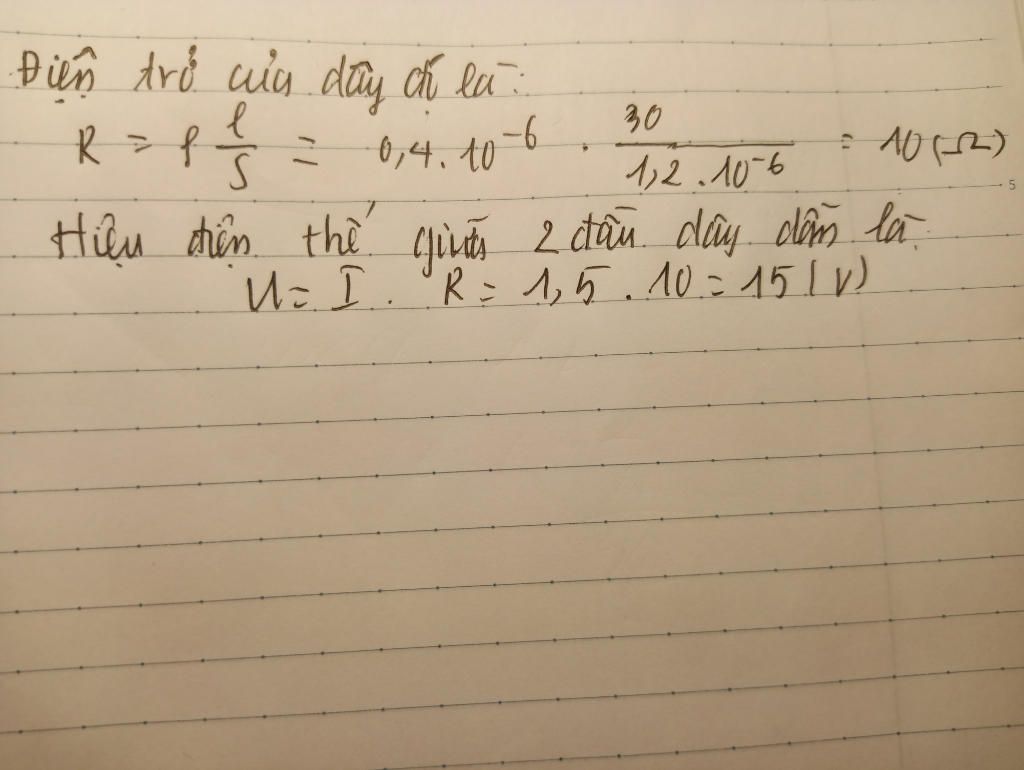 Điện trở của dây dẫn là:
R = ρ l/S = 0,4.10^-6 . 30/1,2.10^-6 = 10 (Ω)
5
Hiệu điện thế giữa 2 đầu dây dẫn là:
U = I . R = 1,5 . 10 = 15 (V)